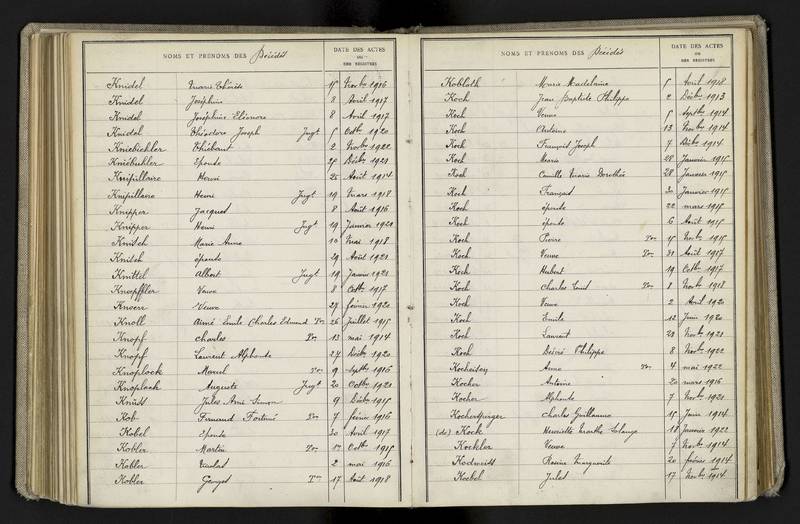 NOMS ET PRÉNOMS DES Décédés
DATE DES ACTES
OU
DES REGISTRES
Knidel Marie Thérèse 15 Novbre 1916
Knidel Joséphine 8 Avril 1917
Knidel Joséphine Eléonore 8 Avril 1917
Knidel Théodore Joseph Jugt 5 Octbre 1920
Kniebichler Thiébaut 2 Novbre 1922
Kniébuhler Epouse Décbre 1921
Knipillaire Henri 25 Août 1914
Knipillaire Henri Jugt 19 Mars 1918
Knipper Jacques 8 Août 1916
Knipper Henri Jugt 19 Janvier 1920
Knitsch Marie Anne 10 Mai 1918
Knitsh épouse 29 Août 1921
Knittel Albert Jugt 19 Janvier 1921
Knoepffler Veuve 8 Octbre 1917
Knoerr Veuve 27 février 1920
Knoll Aimé Emile Charles Edmond Ton 26 Juillet 1915
Knopf Charles Ton 13 mai 1914
Knopf Laurent Alphonse 27 Décbre 1920
Knoplock Marcel Ton 9 Septbre 1916
Knoploch Auguste Jugt 20 Octbre 1921
Knüss Jules Aimé Simon 9 Décbre 1915
Kob Fernand Fortuné Ton 7 février 1916
Kobel Epouse 30 Avril 1917
Kobler Martin Ton Octbre 1915
Kobler Nicolas 2 mai 1916
Kobler Georges Ton 17 Août 1918
NOMS ET PRÉNOMS DES Décédés
DATE DES ACTES
OU
DES REGISTRES
Kobloth Marie Madeleine 5 Avril 1918
Koch Jean Baptiste Philippe 2 Décbre 1913
Koch Veuve 5 Septbre 1914
Koch Antoine 13 Novbre 1914
Koch François Joseph 7 Décbre 1914
Koch Marie 28 Janvier 1915
Koch Camille Marie Dorothée 28 Janvier 1915
Koch François 30 Janvier 1915
Koch épouse 22 mars 1915
Koch épouse 6 Août 1915
Koch Pierre Ton 15 Novbre 1915
Koch Veuve Ton 31 Août 1917
Koch Hubert 19 Octbre 1917
Koch Charles Ton 8 Novbre 1918
Koch Veuve 2 Avril 1920
Koch Emile 12 Juin 1920
Koch Laurent 23 Novbre 1921
Koch Désiré Philippe 8 Novbre 1922
Kocheisen Anne Ton 4 mai 1922
Kocher Antoine 20 mars 1916
Kocher Alphonse 7 Novbre 1921
Kochersperger Charles Guillaume 15 Juin 1914
(de) Kock Henriette Marthe Solange 18 Janvier 1922
Kockler Veuve 7 Novbre 1914
Kodweiss Rosine Marguerite 20 février 1914
Koebel Jules 17 Novbre 1914